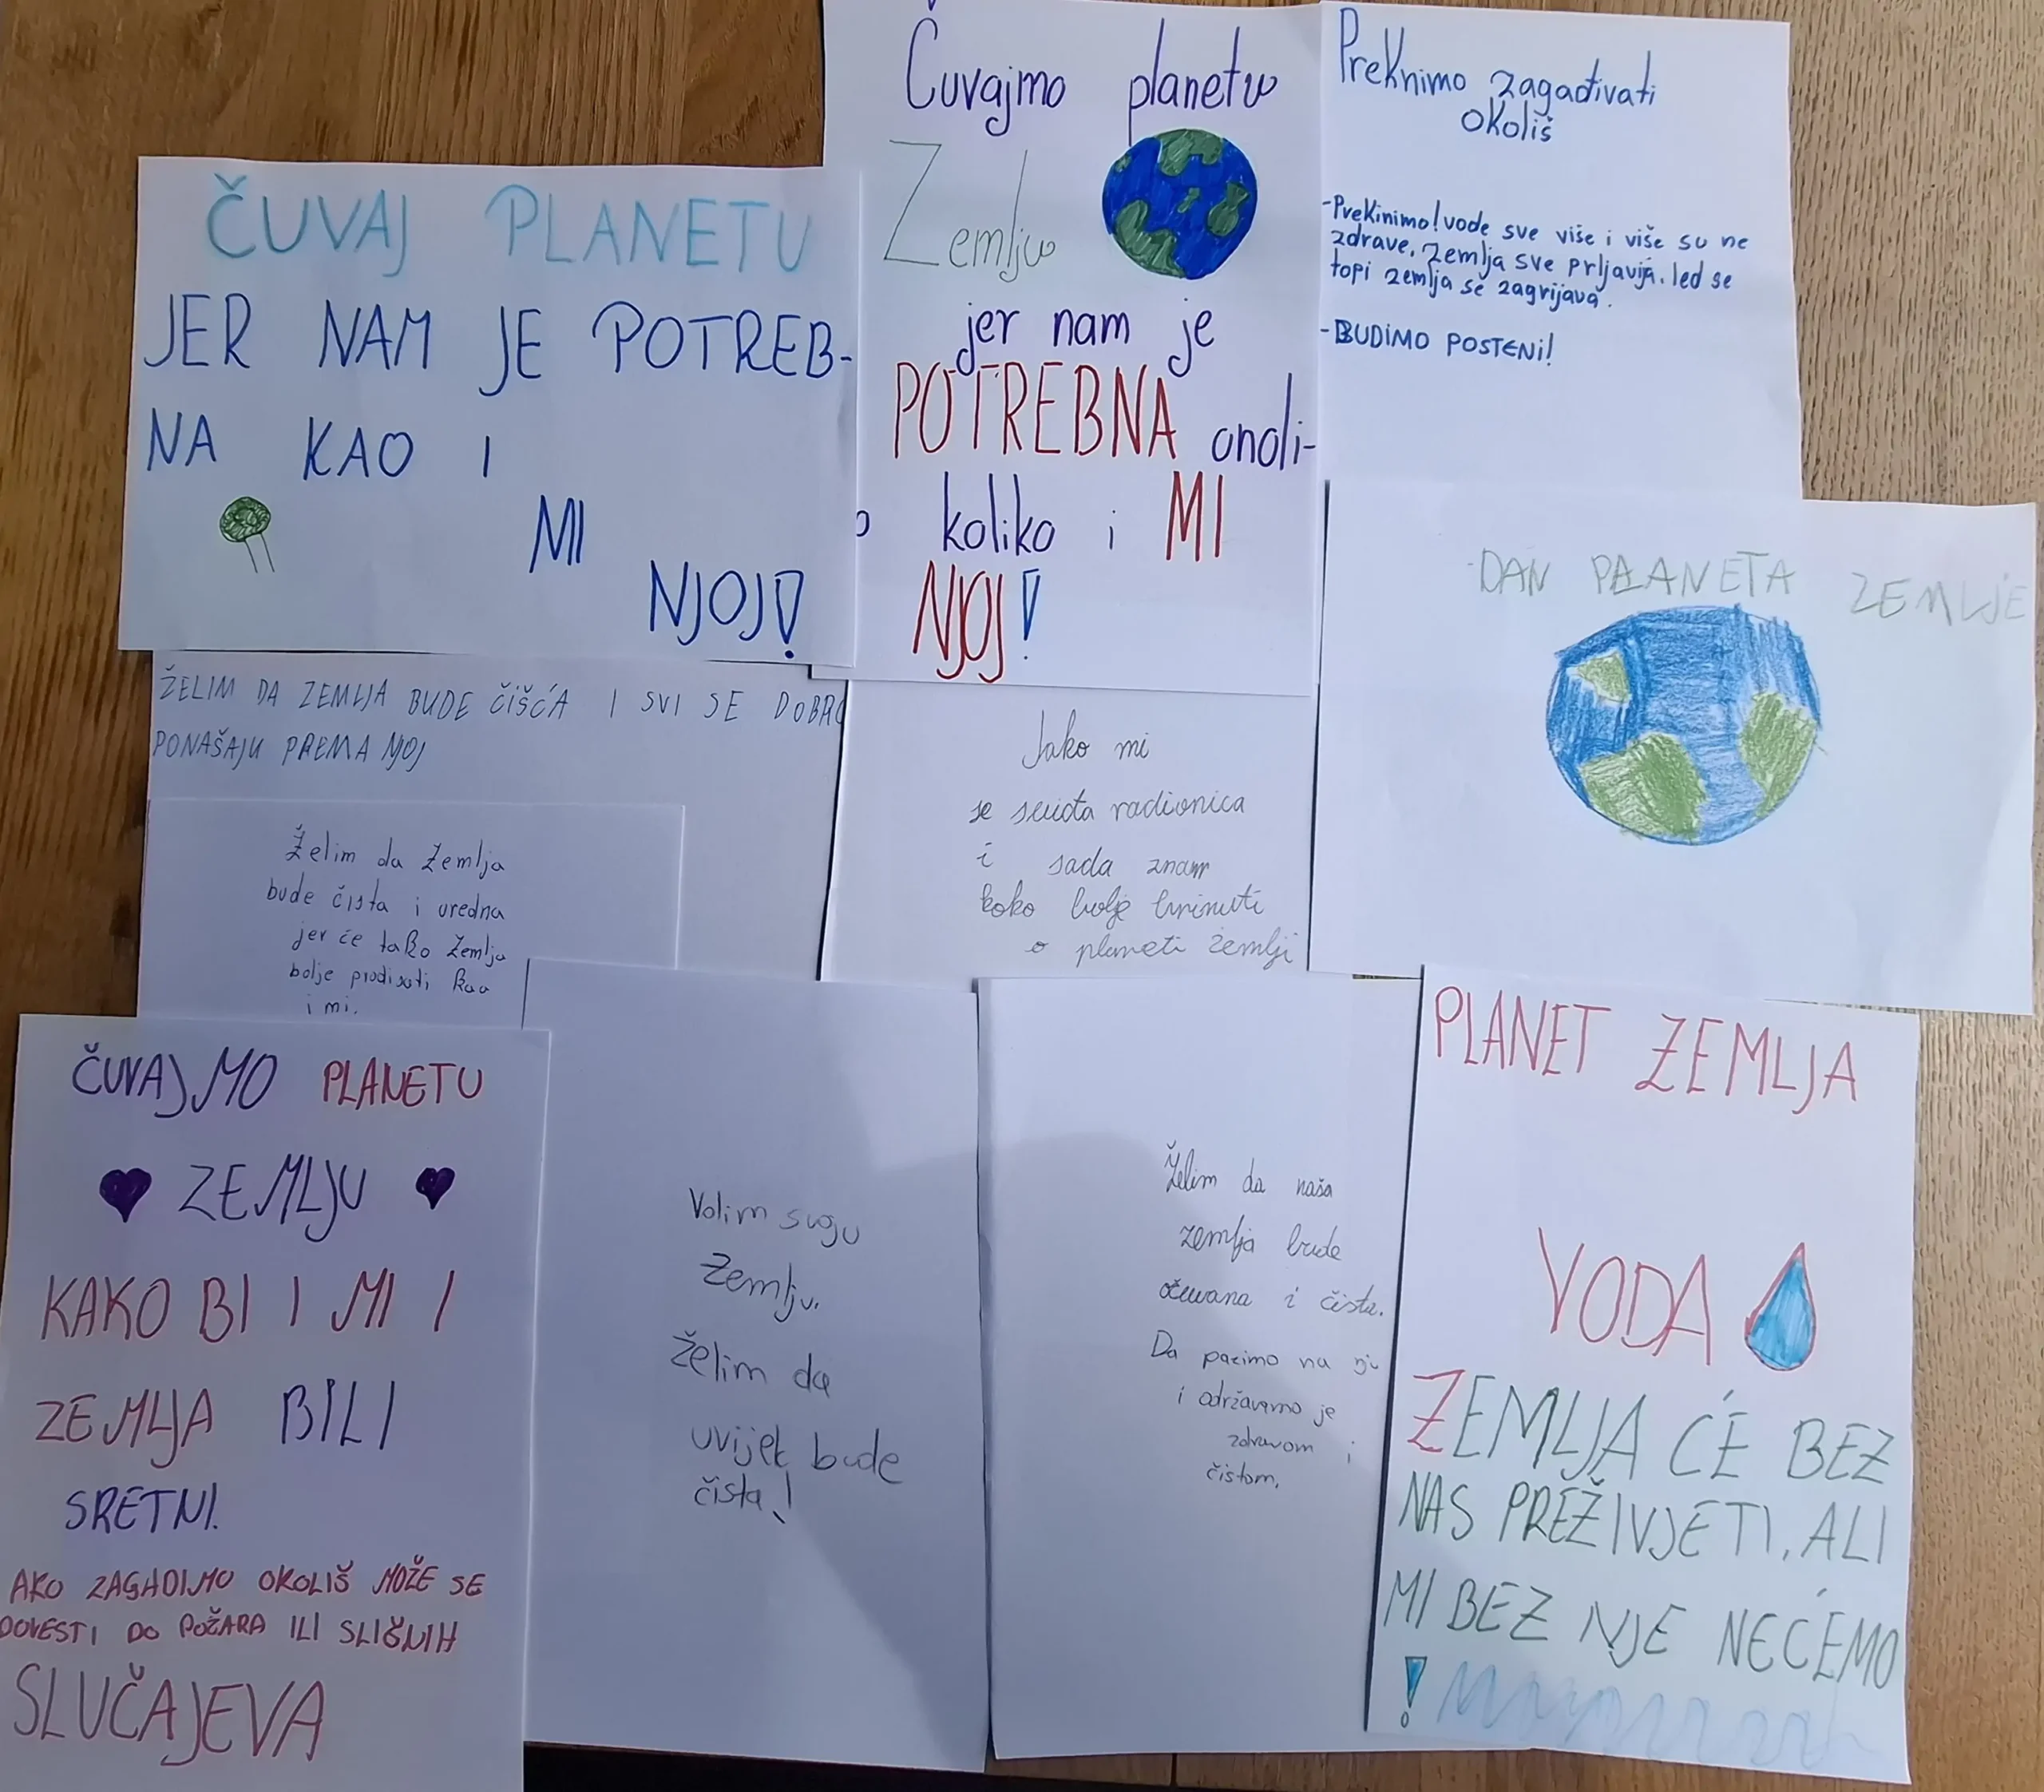 ČUVAJ PLANETU
JER NAM JE POTREB-
NA KAO I
MI
NJOJ!
Čuvajmo planetu
Zemlju
jer nam je
POTREBNA onoli-
o koliko i MI
NJOJ!
Preknimo zagađivati
okoliš
-Prekinimo! vode sve više i više su ne
zdrave, zemlja sve prljavija. led se
topi zemlja se zagrijava.
-BUDIMO POSTENI!
DAN PLANETA ZEMLJE
ŽELIM DA ZEMLJA BUDE ČIŠĆA I SVI SE DOBRO
PONAŠAJU PREMA NJOJ
Želim da Zemlja
bude čista i uredna
jer će tako Zemlja
bolje prodisati kao
i mi.
Jako mi
se sviđa radionica
i sada znam
koko bolje brinuti
o planeti zemlji
ČUVAJMO PLANETU
ZEMLJU
KAKO BI I MI I
ZEMLJA BILI
SRETNI.
AKO ZAGADIMO OKOLIŠ MOŽE SE
DOVESTI DO POŽARA ILI SLIČNIH
SLUČAJEVA
Volim svoju
Zemlju.
Želim da
uvijek bude
čista!
Želim da naša
zemlja bude
očuvana i čista.
Da pazimo na nju
i održavamo je
zdravom i
čistom.
PLANET ZEMLJA
VODA
ZEMLJA ĆE BEZ
NAS PREŽIVJETI, ALI
MI BEZ NJE NEĆEMO
!